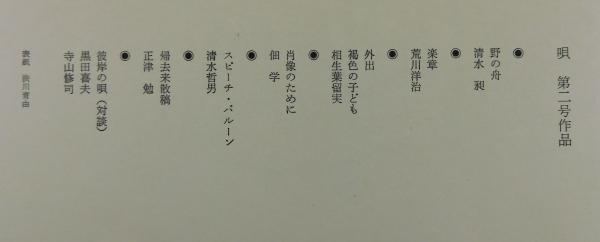 唄 第二号作品
◉
野の舟
清水 昶
◉
楽章
荒川洋治
◉
外出
褐色の子ども
相生葉留実
◉
肖像のために
佃 学
◉
スピーチ・バルーン
清水哲男
◉
帰去来散稿
正津 勉
◉
彼岸の唄(対談)
黒田喜夫
寺山修司
表紙